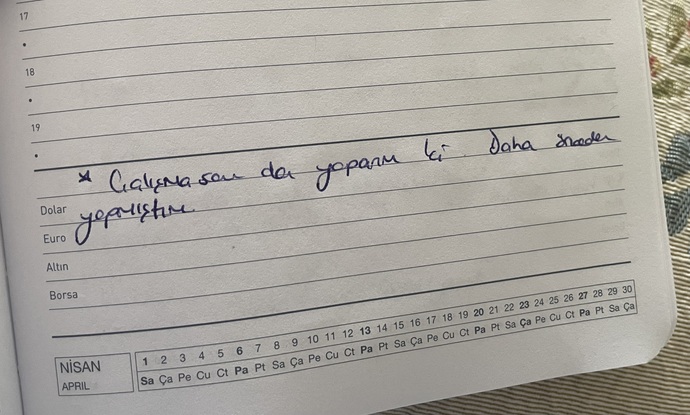 17
•
18
•
19
•
* Çalışmasam da yaparım ki. Daha önceden
Dolar yapmıştım.
Euro
Altın
Borsa
NİSAN 1 2 3 4 5 6 7 8 9 10 11 12 13 14 15 16 17 18 19 20 21 22 23 24 25 26 27 28 29 30
APRIL Sa Ça Pe Cu Ct Pa Pt Sa Ça Pe Cu Ct Pa Pt Sa Ça Pe Cu Ct Pa Pt Sa Ça Pe Cu Ct Pa Pt Sa Ça